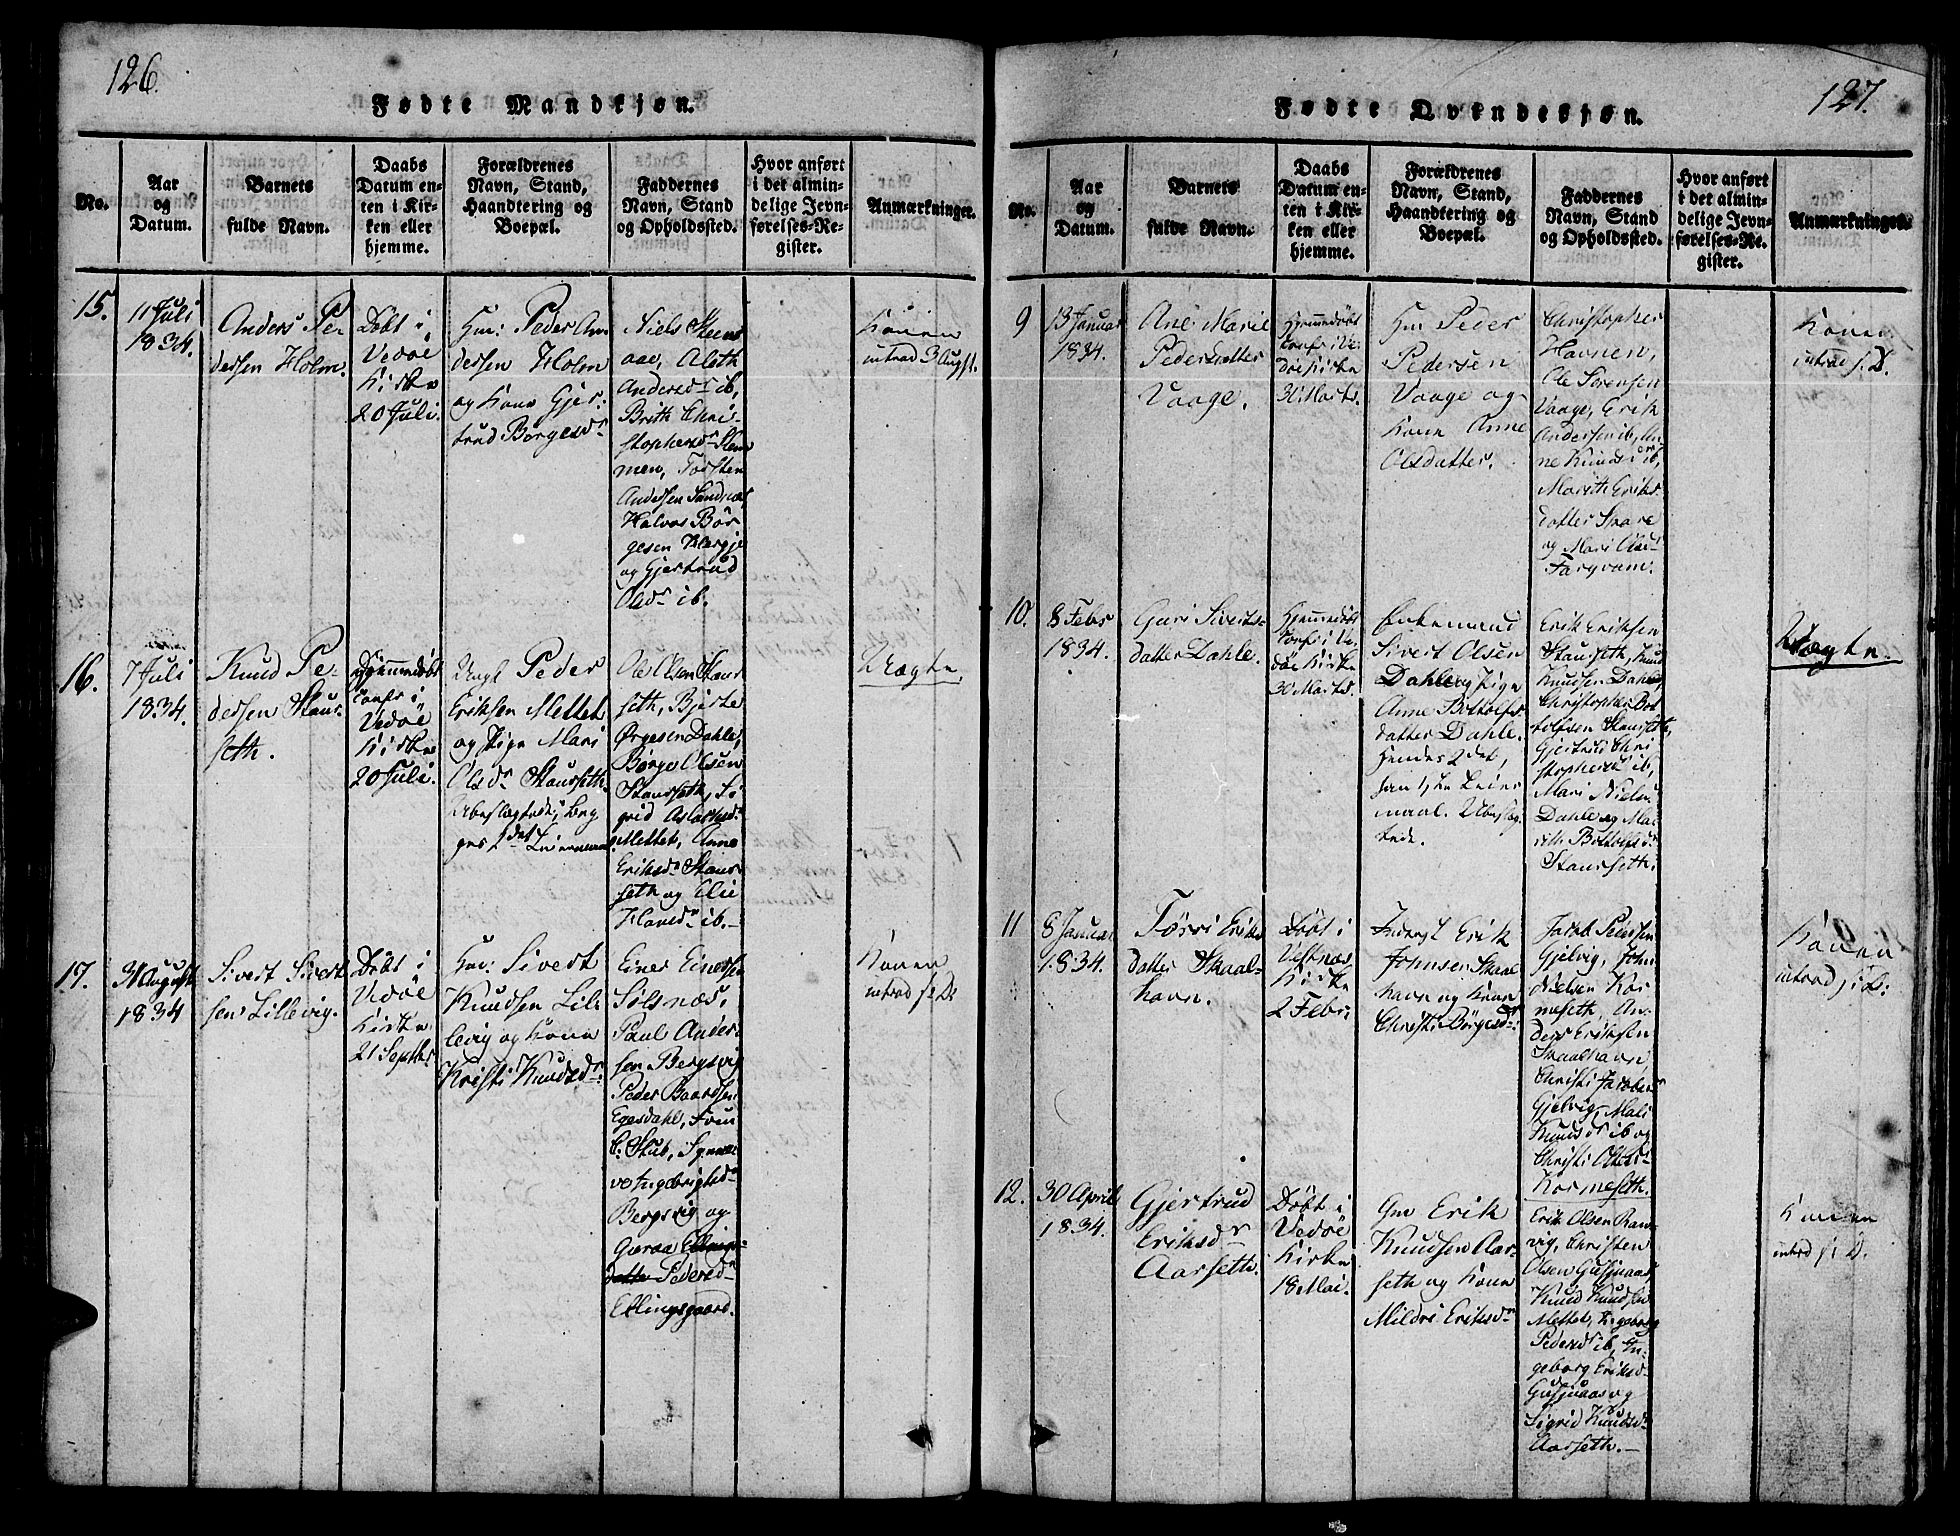 126.
Fødte Mandkjøn.
No.
Aar
og
Datum.
Barnets
fulde Navn.
Daabs
Datum en-
ten i Kir-
ken eller
hjemme.
Forældrenes
Navn, Stand,
Haandtering og
Boepæl.
Faddernes
Navn, Stand
og Opholdssted.
Hvor anført
i det almin-
delige Jevn-
førelses-Re-
gister.
Anmærkninger.
15.
11 Juli
1834.
Anders Pe-
dersen Holm.
Døbt i
Vedøe
Kirke
20 Juli.
Gm: Peder An
dersen Holm
og Kone Gjer-
trud Børgesdr
Niels Steens
aae, Aleth
Andersdr ib,
Brith Chri-
stophersdr Hem
men, Torsten
Andersen Sandnæs,
Halvor Bør
gesen
og Gjertrud
Olsdr ib.
Konen
introd 3 Augst.
16.
7 Juli
1834.
Knud Pe-
dersen Staur-
seth.
Hjemmedøbt
Confr i
Vedøe
Kirke
20 Juli.
Ungk Peder
Eriksen Mettet
og Pige Mari
Olsdr Staurseth.
Ubeslægtede, beg
ges 1det Leiermaal
Ole Olsen Staur
seth, Bjerte
Ørgesen Dahle,
Børge Olsen
Staurseth, Si
grid Aslaksdr
Mettet, Anne
Eriksdr Staur-
seth og Elie
Havedr ib.
Uægte.
17.
31 August
1834
Sivert Sivert
sen Lillevig.
Døbt i
Vedøe
Kirke
21 Septbr
Gm: Sivert
Knudsen Lil-
levig og Kone
Kristi Knudsdr:
Einer Einersen
Sølsnæs,
Paul Ander-
sen Bergsvig
Peder Baardsen
Egesdahl, Fru
C: Stub, Synne-
ve Ingebrigtsdr
Bergsvig og
Guroe Ellings-
datter Pedersdr
Ellingsgaard.
Konen
introd s: D:
127.
Fødte Qvindekjøn.
No.
Aar
og
Datum.
Barnets
fulde Navn.
Daabs
Datum en-
ten i Kir-
ken eller
hjemme.
Forældrenes
Navn, Stand,
Haandtering og
Boepæl.
Faddernes
Navn, Stand
og Opholdssted.
Hvor anført
i det almin-
delige Jevn-
førelses-Re-
gister.
Anmærkninger.
9
13 Januar
1834.
Ane Marie
Pedersdatter
Vaage.
Hjemmedøbt
Confr i Ve-
døe Kirke
31 Marts.
Gm Peder
Pedersen
Vaage og
Kone Anne
Olsdatter.
Christopher
Havnen,
Ole Sørensen
Vaage, Erik
Andersen ib, An-
ne Knudsdr ib,
Marith Eriks-
datter Skare
og Mari Olsdr
Fargvam.
Konen
introd s. D.
10.
8 Febr
1834.
Guri Siverts-
datter Dahle.
Hjemmedøbt
Confr i Ve-
døe Kirke
30 Marts.
Enkemand
Sivert Olsen
Dahle og Pige
Anne Bottolfs
datter Dahle.
Hendes 2det,
hans 1ste Leier
maal. Ubeslæg
tede.
Erik Eriksen
Staurseth, Knud
Knudsen Dahle,
Christopher Bot
tolfsen Staurseth,
Gjertrud Chri
stophersdr ib,
Mari Nielsdr
Dahle og Ma-
rith Bottolfsdr
Staurseth.
Uægte.
11
8 Januar
1834.
Tørri Eriks
datter Skaal-
havn.
Døbt i
Vestnæs
Kirke
2 Febr.
Inderst Erik
Johnsen Skaal
havn og Kone
Christi Børgesdr:
Jacob Peersen
Gjelvig, John
Nielsen Kor
meseth, An-
ders Eriksen
Skaalhavn,
Christi Jacobsdr
Gjelvig, Mali
Knudsdr ib og
Christi Olsdr
Kormeseth.
Konen
introd s: D:
12.
30 April
1834.
Gjertrud
Eriksdr
Aarseth.
Døbt i
Vedøe
Kirke
18 Mai.
Gm Erik
Knudsen Aar-
seth og Kone
Mildri Eriksdr
Erik Olsen Ran-
vig, Christen
Olsen Gusjuaas,
Knud Knudsen
Mettet, Ingeborg
Pedersdr ib, In-
geborg Eriksdr
Gusjuaas og
Sigrid Knudsdr
Aarseth.
Konen
introd s: D.